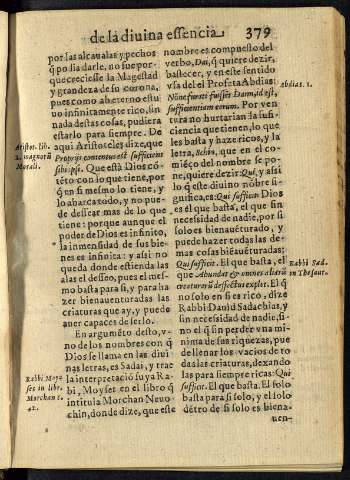 de la diuina essencia. 379
por las alcaualas y pechos
q̃ podia darle, no fue por-
que creciesse la Magestad
y grandeza de su corona,
pues como abeterno estu
uo infinitamente rico, sin
nada destas cosas, pudiera
estarlo para siempre. De
aqui Aristoteles dize, que
Proprijs contentus est sufficiens
sibi ipse. Que està Dios cõ-
tẽto con lo que tiene, por
q̃ en si mesmo lo tiene, y
lo abarca todo, y no pue-
de dessear mas de lo que
tiene: porque aunque el
poder de Dios es infinito,
la inmensidad de sus bie-
nes es infinita: y assi no
queda donde estienda las
alas el desseo, pues el mes-
mo basta para si, y para ha
zer bienauenturadas las
criaturas que ay, y puede
auer capaces de serlo.
En argumẽto desto, v-
no de los nombres con q̃
Dios se llama en las diui
nas letras, es Sadai, y trae
la interpretaciõ suya Ra-
bi, Moyses en el libro q̃
intitula Morchan Neuo-
chin, donde dize, que este
Aristot. lib.
2. magnorũ
Morali.
Rabbi Moy-
ses in libr.
Morchan c.
42.
nombre es compuesto del
verbo, Dai, q̃ quiere dezir,
bastecer, y en este sentido
vsa del el Profeta Abdias:
Nõne furati fuissẽt Daim, id est,
sufficientiam eorum. Por ven
tura no hurtarian la sufi-
ciencia que tienen, lo que
les basta y haze ricos, y la
letra, Schin, que en el co-
miẽço del nombre se po-
ne, quiere dezir: Qui, y assi
lo q̃ este diuino nõbre si-
gnifica, es: Qui sufficit. Dios
es el que basta, el que sin
necessidad de nadie, por si
solo es bienauẽturado, y
puede hazer todas las de
mas cosas biẽauẽturadas:
Qui sufficit. El que basta, el
que Abundat & omnes aliarũ
creaturarũ defectus explet. El q̃
no solo en si es rico, dize
Rabbi Dauid Sadachias, y
sin necessidad de nadie, si-
no el q̃ sin perder vna mi
nima de sus riquezas, pue
de llenar los vacios de to
das las criaturas, dexando
las para siempre ricas: Qui
sufficit. El que basta. El solo
basta para si solo, y el solo
dẽtro de si solo es biena-
uen-
Abdias. 1.
Rabbi Sad.
in Thesaur.